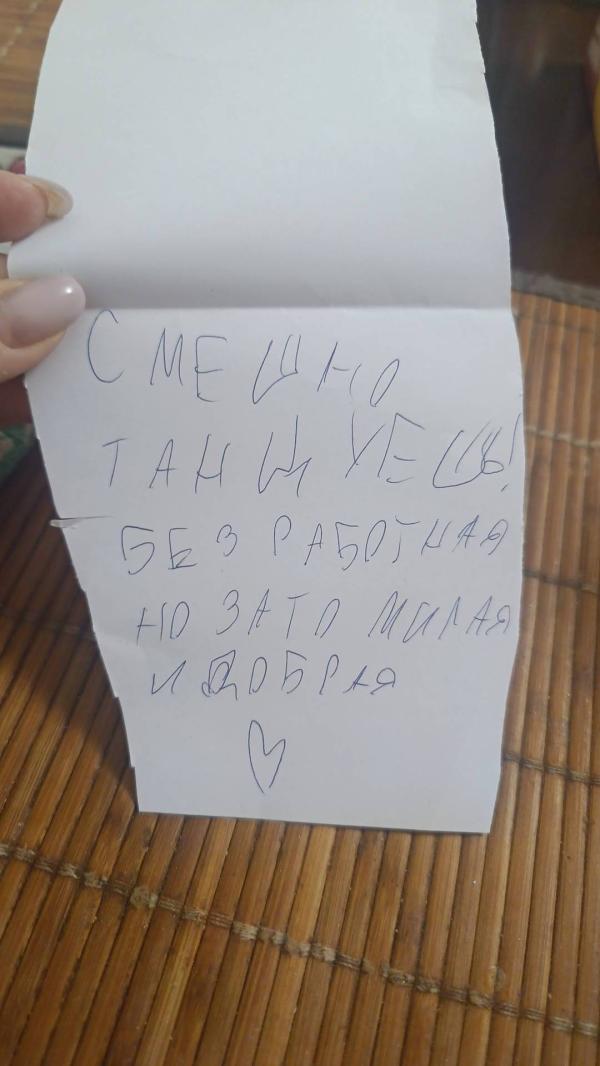 СМЕШНО
ТАНЦУЕШЬ!
БЕЗРАБОТНАЯ
НО ЗАТО МИЛАЯ
И ДОБРАЯ